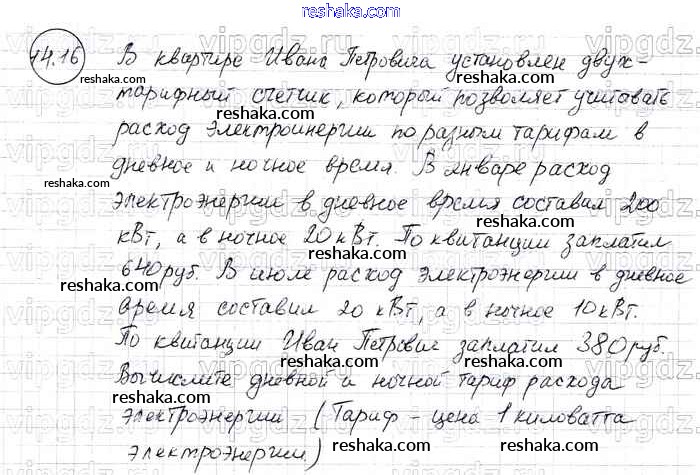 reshaka.com
14.16 В квартире Ивана Петровича установлен двух-
reshaka.com reshaka.com
тарифный счетчик, который позволяет учитывать
расход электроинергии по разным тарифам в
reshaka.com
дневное и ночное время. В январе расход
reshaka.com
электроэнергии в дневное время составил 200
reshaka.com
кВт, а в ночное 20 кВт. По квитанции заплатил
reshaka.com
640 руб. В июле расход электроэнергии в дневное
reshaka.com
время составил 20 кВт, а в ночное 10 кВт.
reshaka.com
По квитанции Иван Петрович заплатил 380 руб.
reshaka.com reshaka.com
Вычислите дневной и ночной тариф расхода
reshaka.com
электроэнергии (Тариф – цена 1 киловатта
reshaka.com
электроэнергии)
reshaka.com
vipgdz.ru